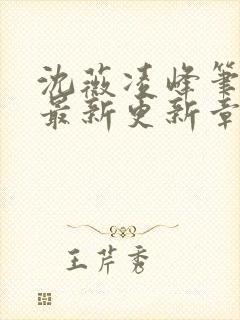 沈薇凌峰筆
最新更新章
王芹秀